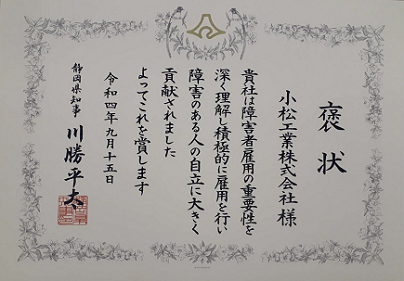 褒状
小松工業株式会社 様
貴社は障害者雇用の重要性を
深く理解し積極的に雇用を行い
障害のある人の自立に大きく
貢献されました
よってこれを賞します
令和四年九月十五日
静岡県知事 川勝平太